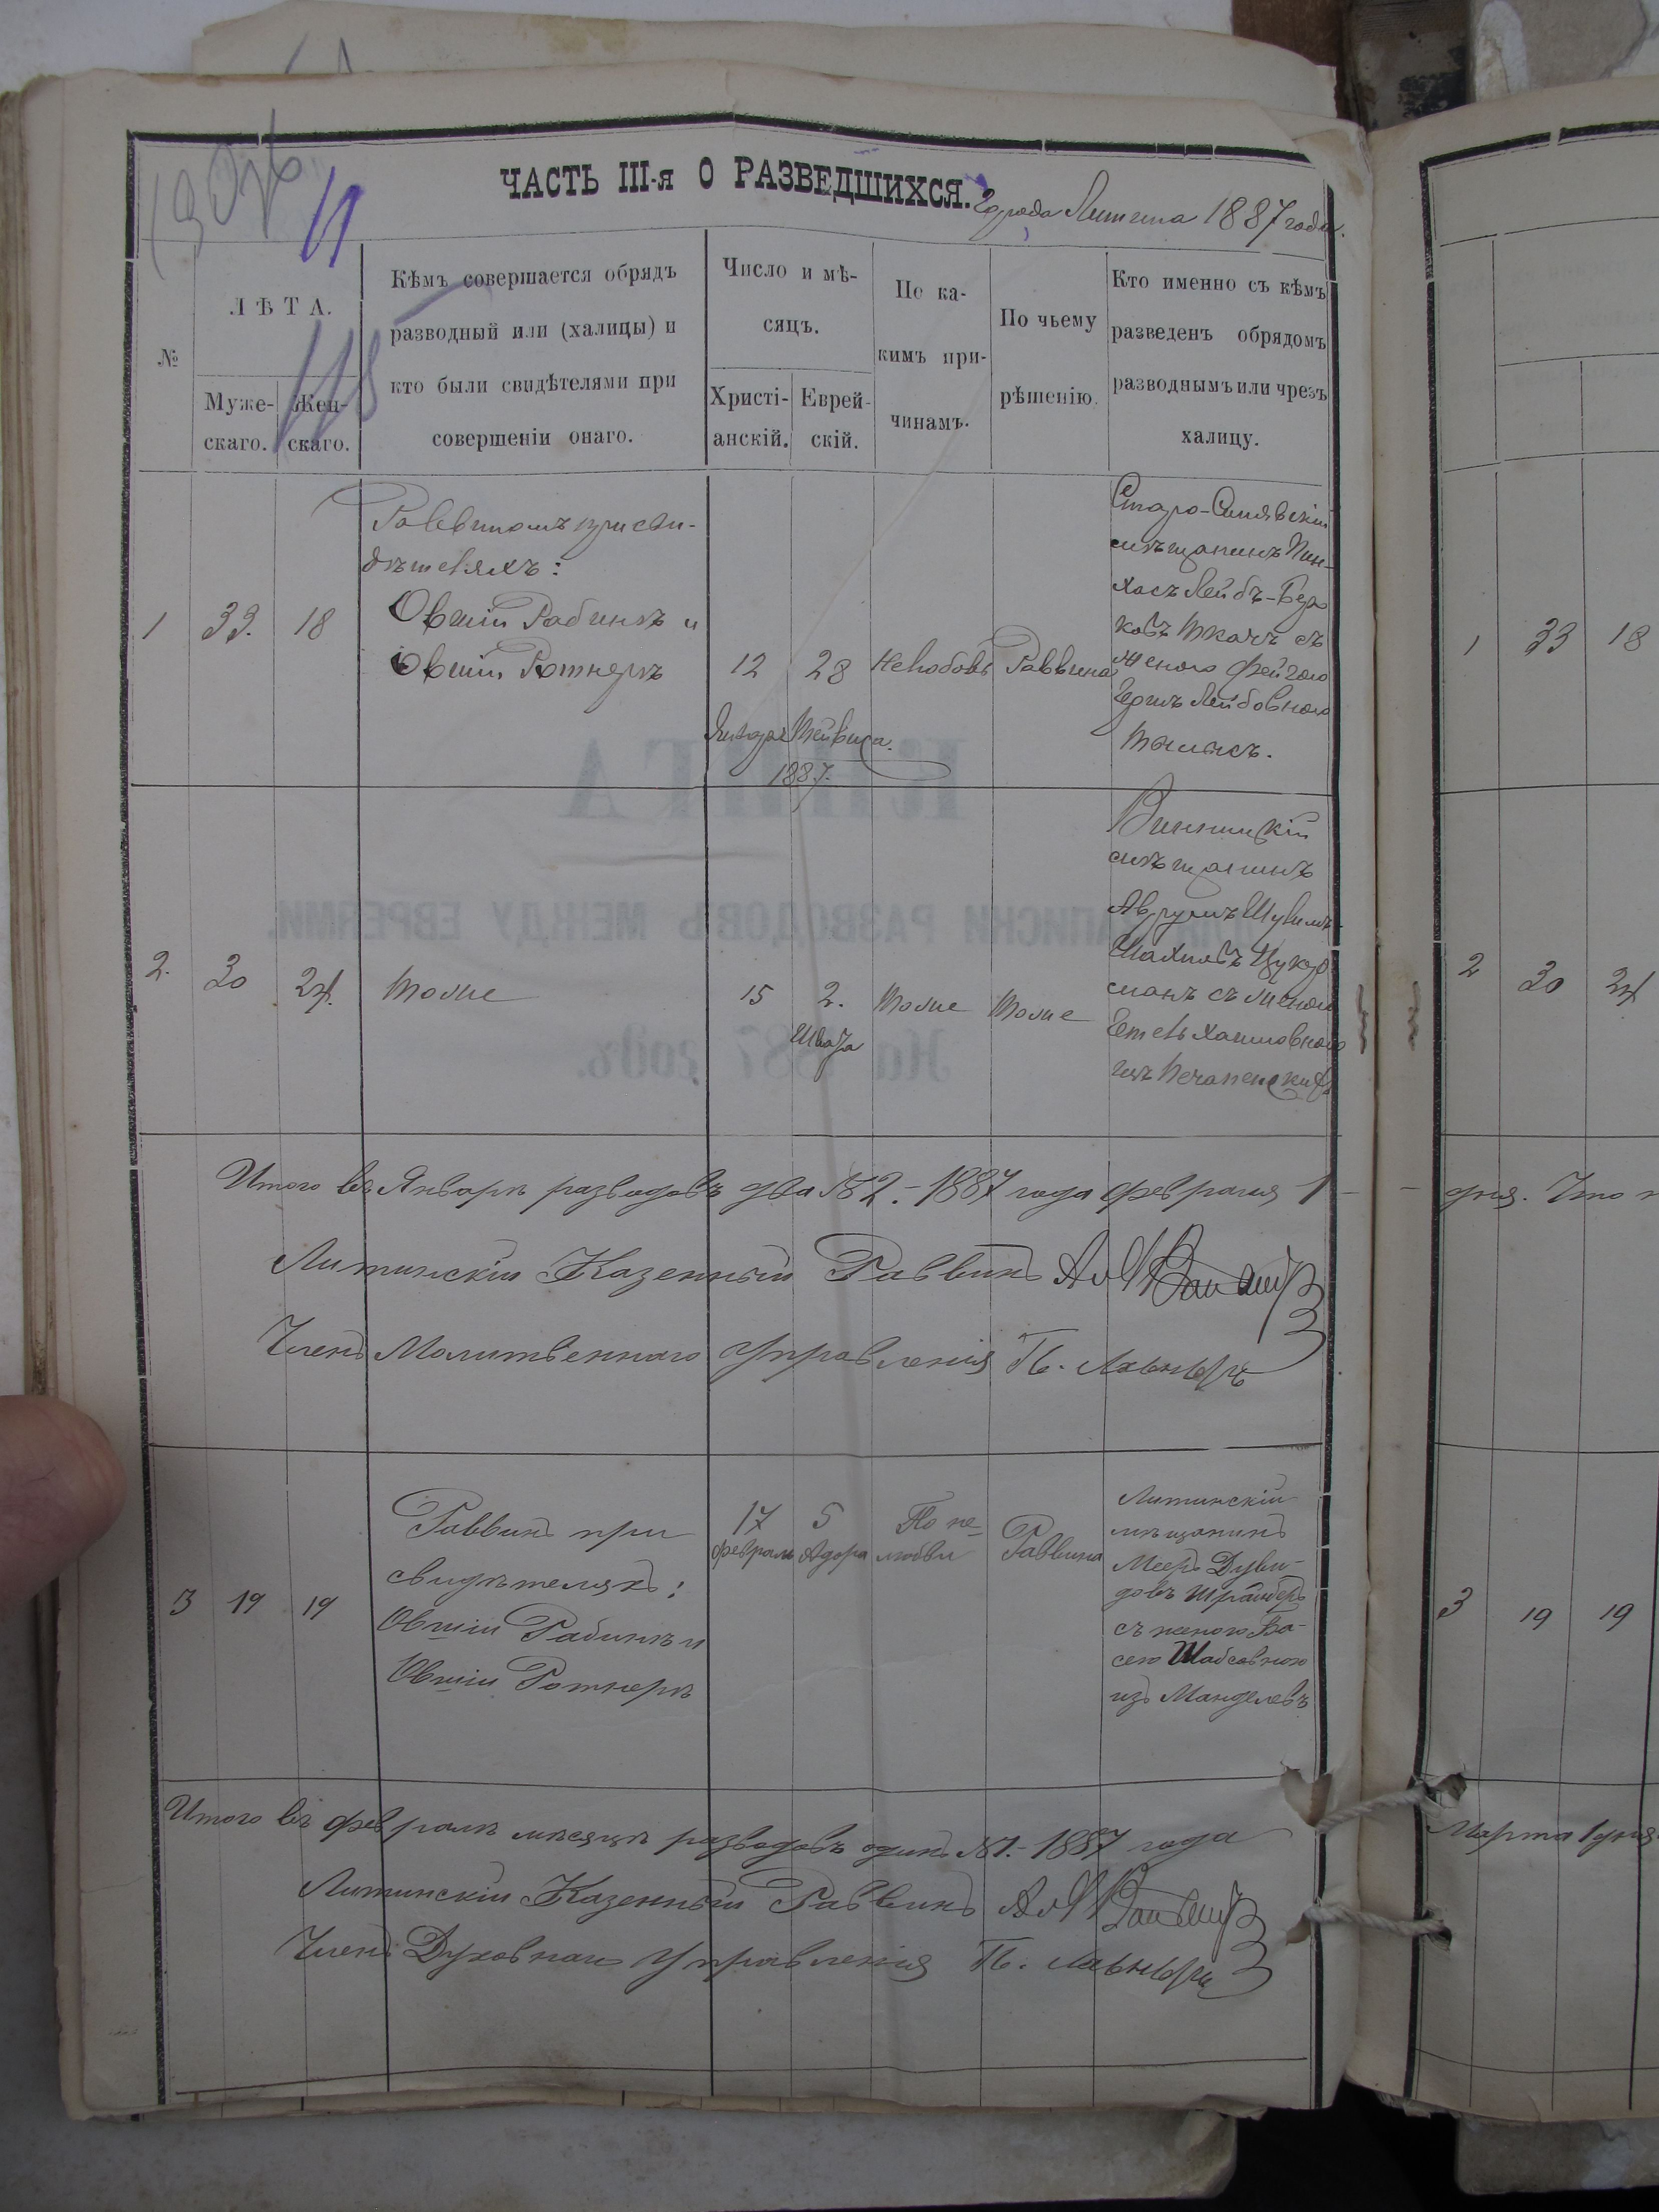 ЧАСТЬ III-я О РАЗВЕДШИХСЯ. Города Литина 1887 года.
№
ЛѢТА.
Муже-
скаго.
Жен-
скаго.
Кѣмъ совершается обрядъ
разводный или (халицы) и
кто были свидѣтелями при
совершеніи онаго.
Число и мѣ-
сяцъ.
Христі-
анскій.
Еврей-
скій.
По ка-
кимъ при-
чинамъ.
По чьему
рѣшенію.
Кто именно съ кѣмъ
разведенъ обрядомъ
разводнымъ или чрезъ
халицу.
1 33. 18
Раввиномъ при сви-
дѣтеляхъ:
Овший Рабинъ и
Овший Ротнеръ
12 28
Января Тейвиса.
1887.
Нелюбовь
Раввина
Старо-Синявскій
мѣщанинъ Пин-
хасъ Лейбъ-Бер
ковъ Ткачъ съ
женою Фейгою
Лейбовною
2. 30 24.
Тоже
15 2.
Швата
Тоже
Тоже
Винницкій
мѣщанинъ
Аврумъ
Шахновъ Цукер
манъ съ женою
Етель Хаимовною
изъ
Итого въ Январѣ разводовъ два № 2.- 1887 года февраля 1
Литинскій Казенный Раввинъ
Членъ Молитвеннаго Управленія
3 19 19
Раввинъ при
свидѣтеляхъ:
Овший Рабинъ и
Овший Ротнеръ
17 5
февраль Адара
По не-
любви
Раввина
Литинскій
мѣщанинъ
Мееръ Дуви-
довъ Шрайберъ
съ женою Ба-
сею Шабсовною
изъ Манделевъ
Итого въ февралѣ мѣсяцѣ разводовъ одинъ №1.- 1887 года
Литинскій Казенный Раввинъ
Членъ Духовнаго Управленія
1 33 18
2 30 24
дня. Что
3 19 19
Марта 1 дня
КНИГА
ЗАПИСКИ РАЗВОДОВЪ МЕЖДУ ЕВРЕЯМИ.
На 1887 годъ.